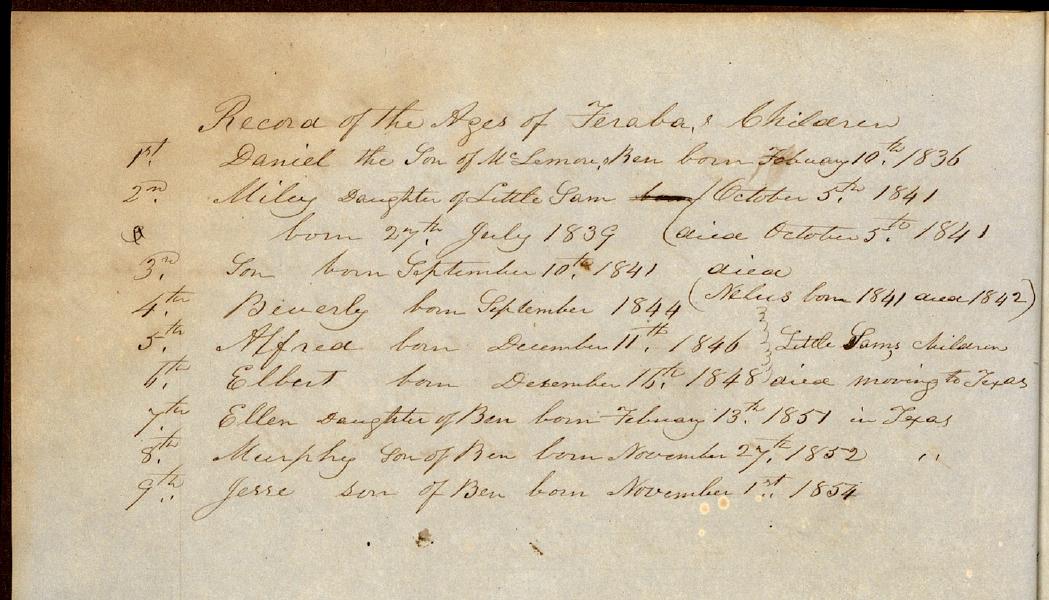 Record of the Ages of Feraba,s Children
1st. Daniel the Son of McLemore,s Ben born Febuary 10th. 1836
2nd. Miley Daughter of Little Sam (October 5th 1841
born 27th. July 1839 (died October 5th. 1841
3rd. Son born September 10th. 1841 died
4th. Beverly born September 1844 (Nelus born 1841 died 1842)
5th. Alfred born December 11th. 1846 Little Sams children
6th. Elbert born Desember 16th. 1848 died moving to Texas
7th Ellen Daughter of Ben born Febuary 13th. 1851 in Texas
8th. Murphy Son of Ben born November 27th. 1852 ,,
9th.. Jesse son of Ben born November 1st. 1854